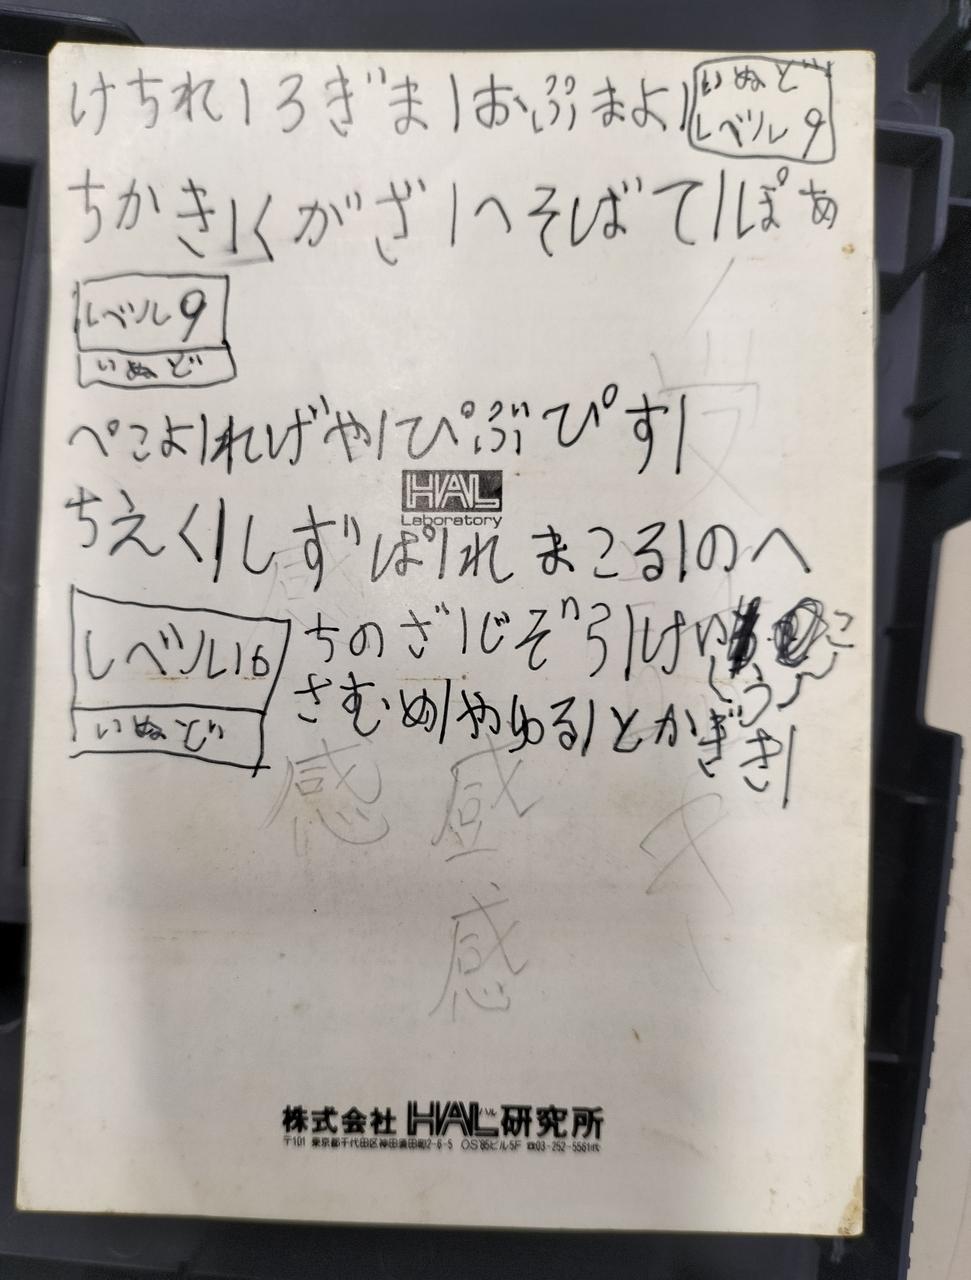 けちれ|ろぎま|おぶまよ|
いぬど
レベル9
ちかき|くがざ|へそばて|ぽぁ
レベル9
いぬど
ぺこよ|れげや|ぴぶぴす|
HAL
Laboratory
ちえく|しずぱ|れまこる|のへ
レベル16
いぬど
ちのざ|じぞう|けい こ
しう
さむめ|やゆる|とかぎき|
受
感
感
感
感
株式会社 HAL研究所
〒101 東京都千代田区神田須田町2-6-5 OS'85ビル5F ☎03-252-5561代